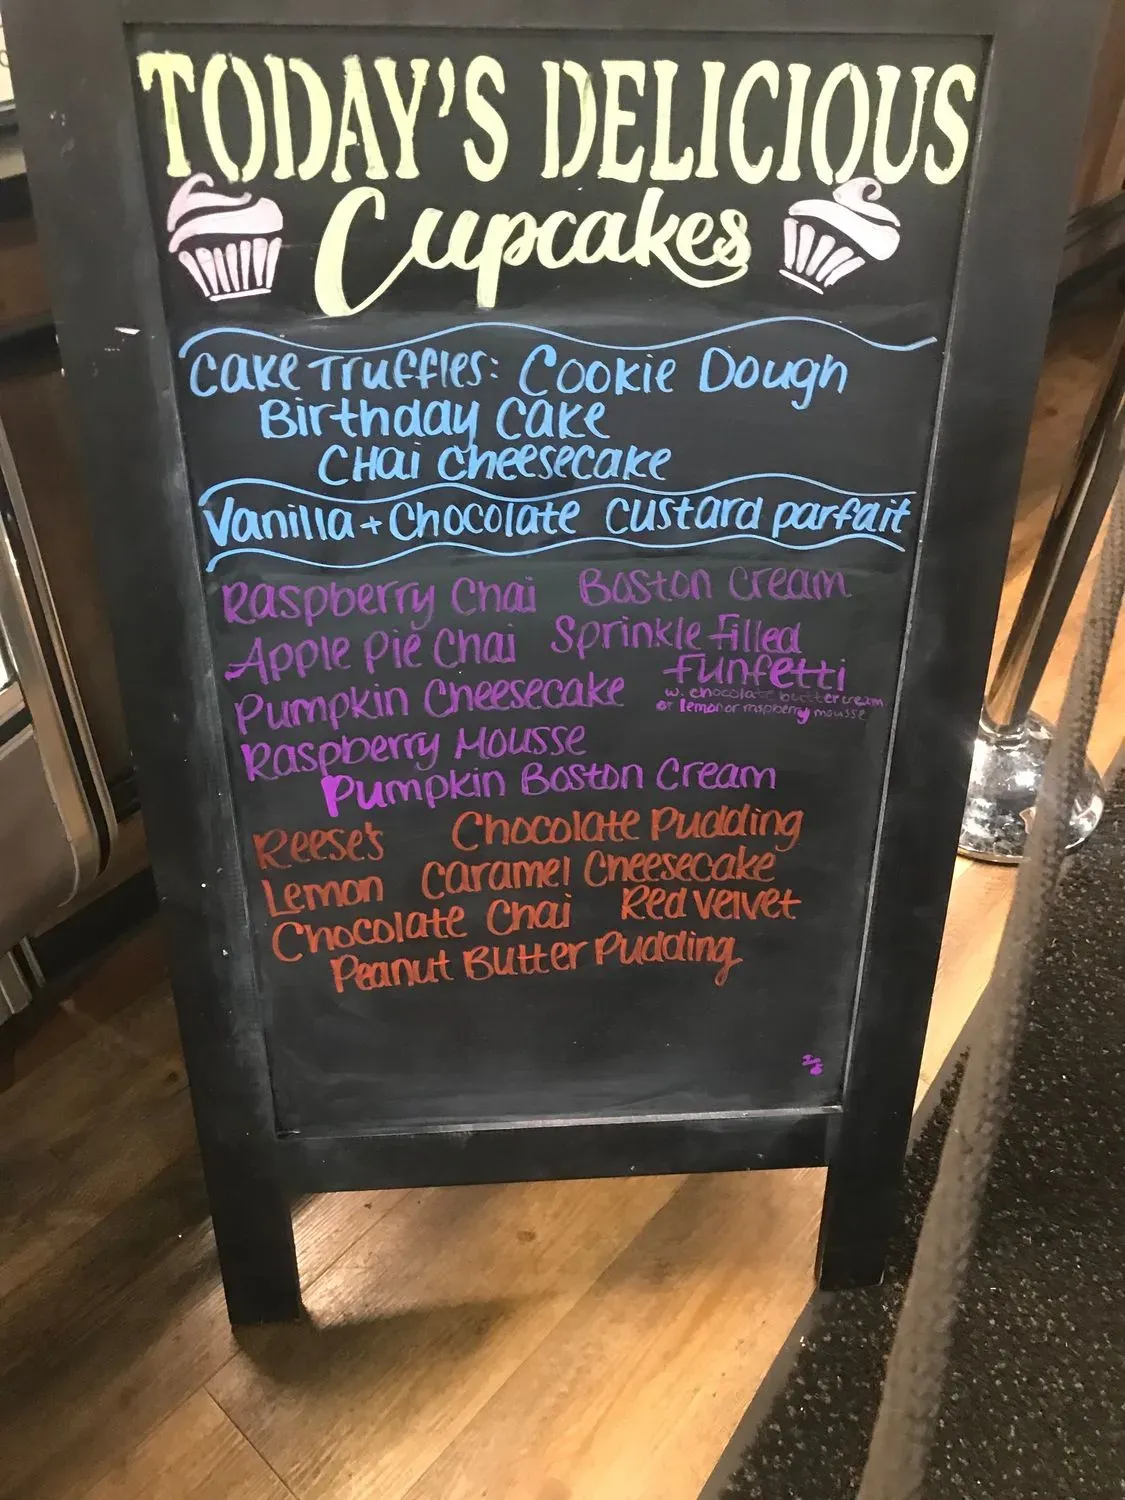 TODAY'S DELICIOUS
Cupcakes
Cake Truffles: Cookie Dough
Birthday Cake
CHai Cheesecake
Vanilla + Chocolate custard parfait
Raspberry Chai Boston Cream
Apple Pie Chai Sprinkle filled
funfetti
Pumpkin Cheesecake w. chocolate buttercream
or lemon or raspberry mousse
Raspberry Mousse
Pumpkin Boston Cream
Reese's Chocolate Pudding
Lemon Caramel Cheesecake
Chocolate Chai Red Velvet
Peanut Butter Pudding